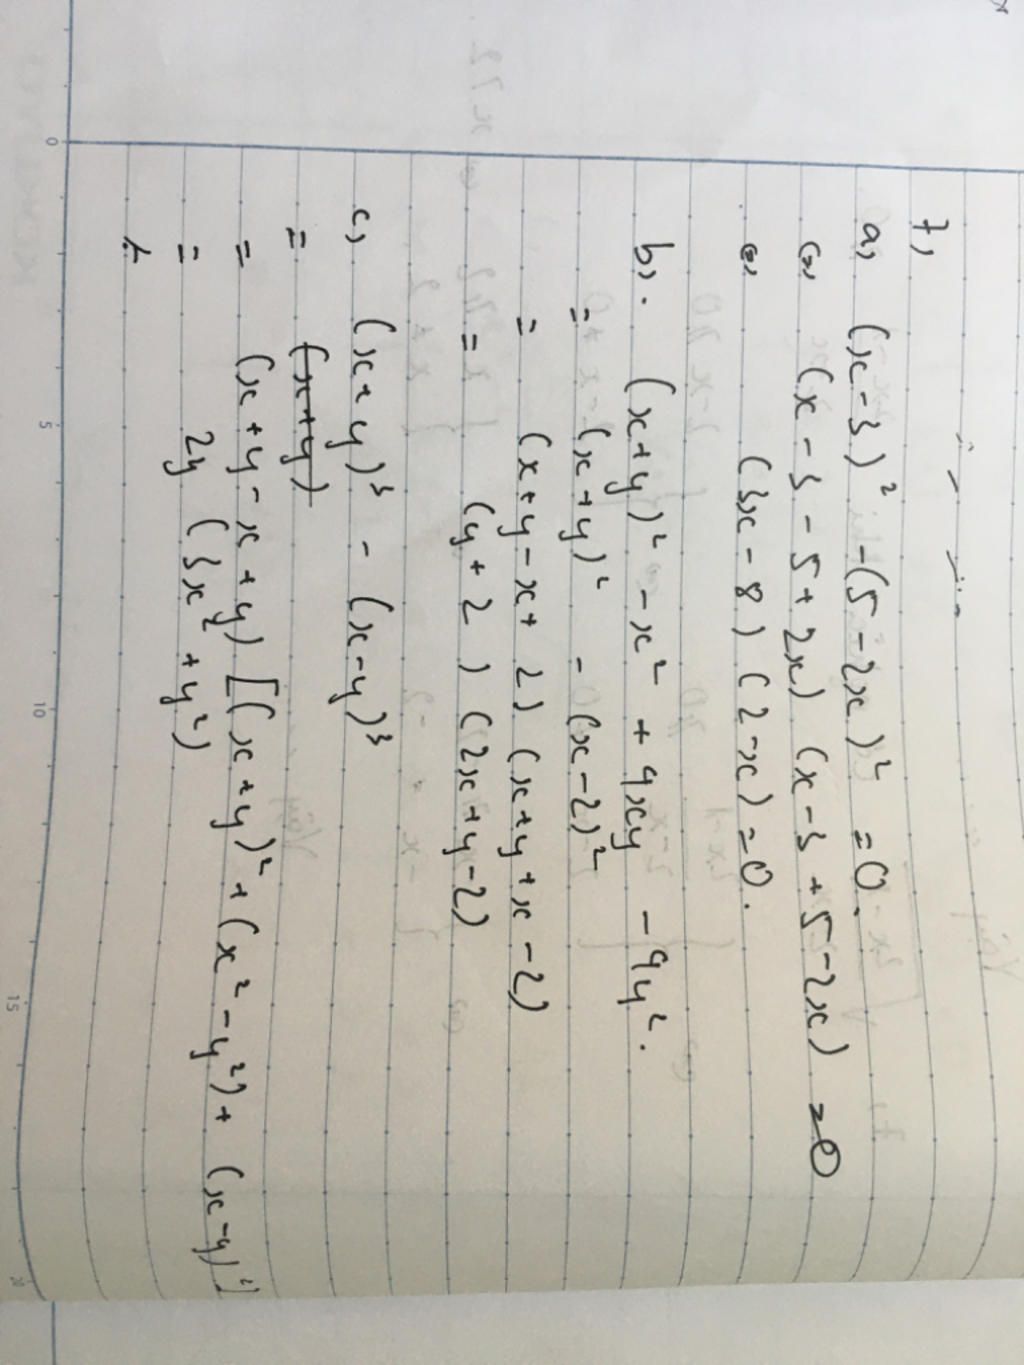 7,
a, (x-3)² -(5-2x)² =0.
(=) (x-3-5+2x) (x-3+5-2x) =0
(=) (3x-8) (2-x)=0.
b, (x+y)² -x² + 4xy - 4y².
= (x+y)² - (x-2)²
= (x+y-x+ 2) (x+y+x-2)
= (y+2) (2x+y-2)
c, (x+y)³ - (x-y)³
= (x+y)
= (x+y-x+y) [(x+y)²+(x²-y²)+ (x-y)²]
= 2y (3x²+y²)
0
5
10
15
20